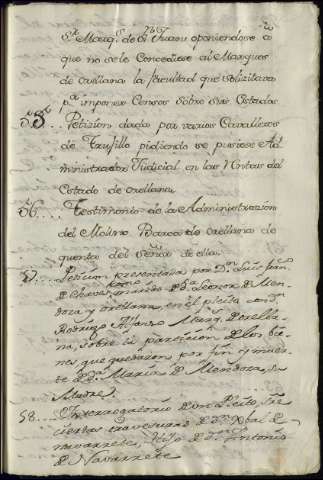 Sr. Marqs. de Sn. Juan oponiendose à
que no se le Concediese al Marques
de orellana la facultad que solizitava
pa. imponer Censos sobre sus Estados
55º... Petizion dada por varios Cavalleros
de Truxillo pidiendo se pusiese Ad
ministrador Judicial en las Rentas del
Estado de orellana
56... Testimonio de la Administrazion
del Molino Barca de orellana de
quenta del Señor de ella.
57. Peticion presentada por Dn. Luis fran
de Chaves marido de Da. Leonor de Men
doza y orellana, en el pleito con Dn.
Rodrigo Alfonso Marqs. de orella
na, sobre la particion de los bie
nes que quedaron por fin y muer
te de Da. Maria de Mendoza, su
Madre.
58. Interrogatorio de un Pleito sre.
ciertas travesuras de Dn. Xptobal de
navarrete, Hijo de Dn. Antonio
de Navarrete